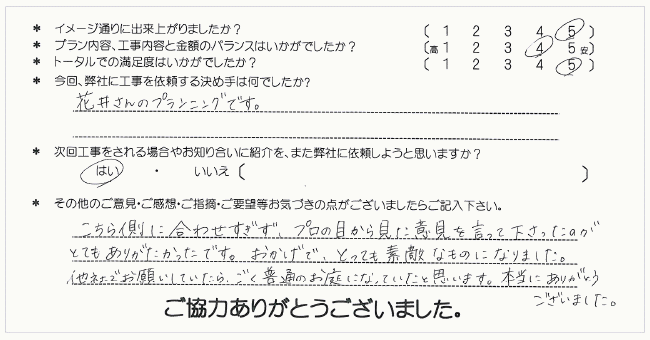 * イメージ通りに出来上がりましたか? 〔 1 2 3 4 5 〕
* プラン内容、工事内容と金額のバランスはいかがでしたか? 〔高 1 2 3 4 5 安〕
* トータルでの満足度はいかがでしたか? 〔 1 2 3 4 5 〕
* 今回、弊社に工事を依頼する決め手は何でしたか?
花井さんのプランニングです。
* 次回工事をされる場合やお知り合いに紹介を、また弊社に依頼しようと思いますか?
はい ・ いいえ〔 〕
* その他のご意見・ご感想・ご指摘・ご要望等お気づきの点がございましたらご記入下さい。
こちら側に合わせすぎず、プロの目から見た意見を言って下さったのが
とてもありがたかったです。おかげで、とっても素敵なものになりました。
他社でお願いしていたら、ごく普通のお庭になっていたと思います。本当にありがとう
ございました。
ご協力ありがとうございました。